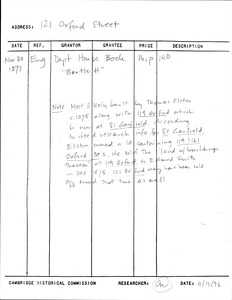 ADDRESS: 121 Oxford Street
DATE REF. GRANTOR GRANTEE PRICE DESCRIPTION
Nov 30 Eng Dept House Book 16, p 140
1877 "Bartlett"
Note: Most likely built by Thomas Elston
c. 1875 along with 119 Oxford which
is now at 81 Garfield. According
to deed research info for 81 Garfield,
Elston owned a lot containing 119-121
Oxford St. He sold the "land w/ buildings
thereon" at 119 Oxford to Edmund Smith
in Dec 1875. 121 Oxford may have been sold
off around that time as well
CAMBRIDGE HISTORICAL COMMISSION RESEARCHER: DATE: 4/12/96